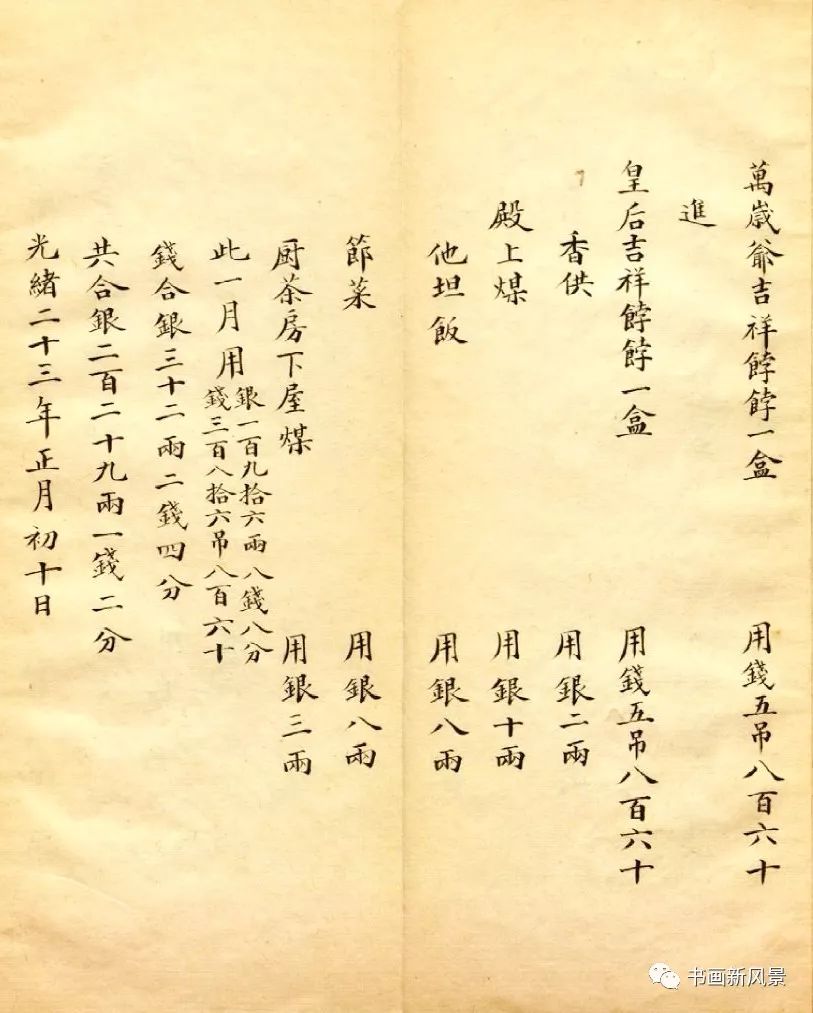 萬歲爺吉祥餑餑一盒 用錢五吊八百六十
進
皇后吉祥餑餑一盒 用錢五吊八百六十
香供 用銀二兩
殿上煤 用銀十兩
他坦飯 用銀八兩
節菜 用銀八兩
厨茶房下屋煤 用銀三兩
此一月用銀一百九拾六兩八錢八分
錢三百八拾六吊八百六十
錢合銀三十二兩二錢四分
共合銀二百二十九兩一錢二分
光緒二十三年正月初十日
书画新风景